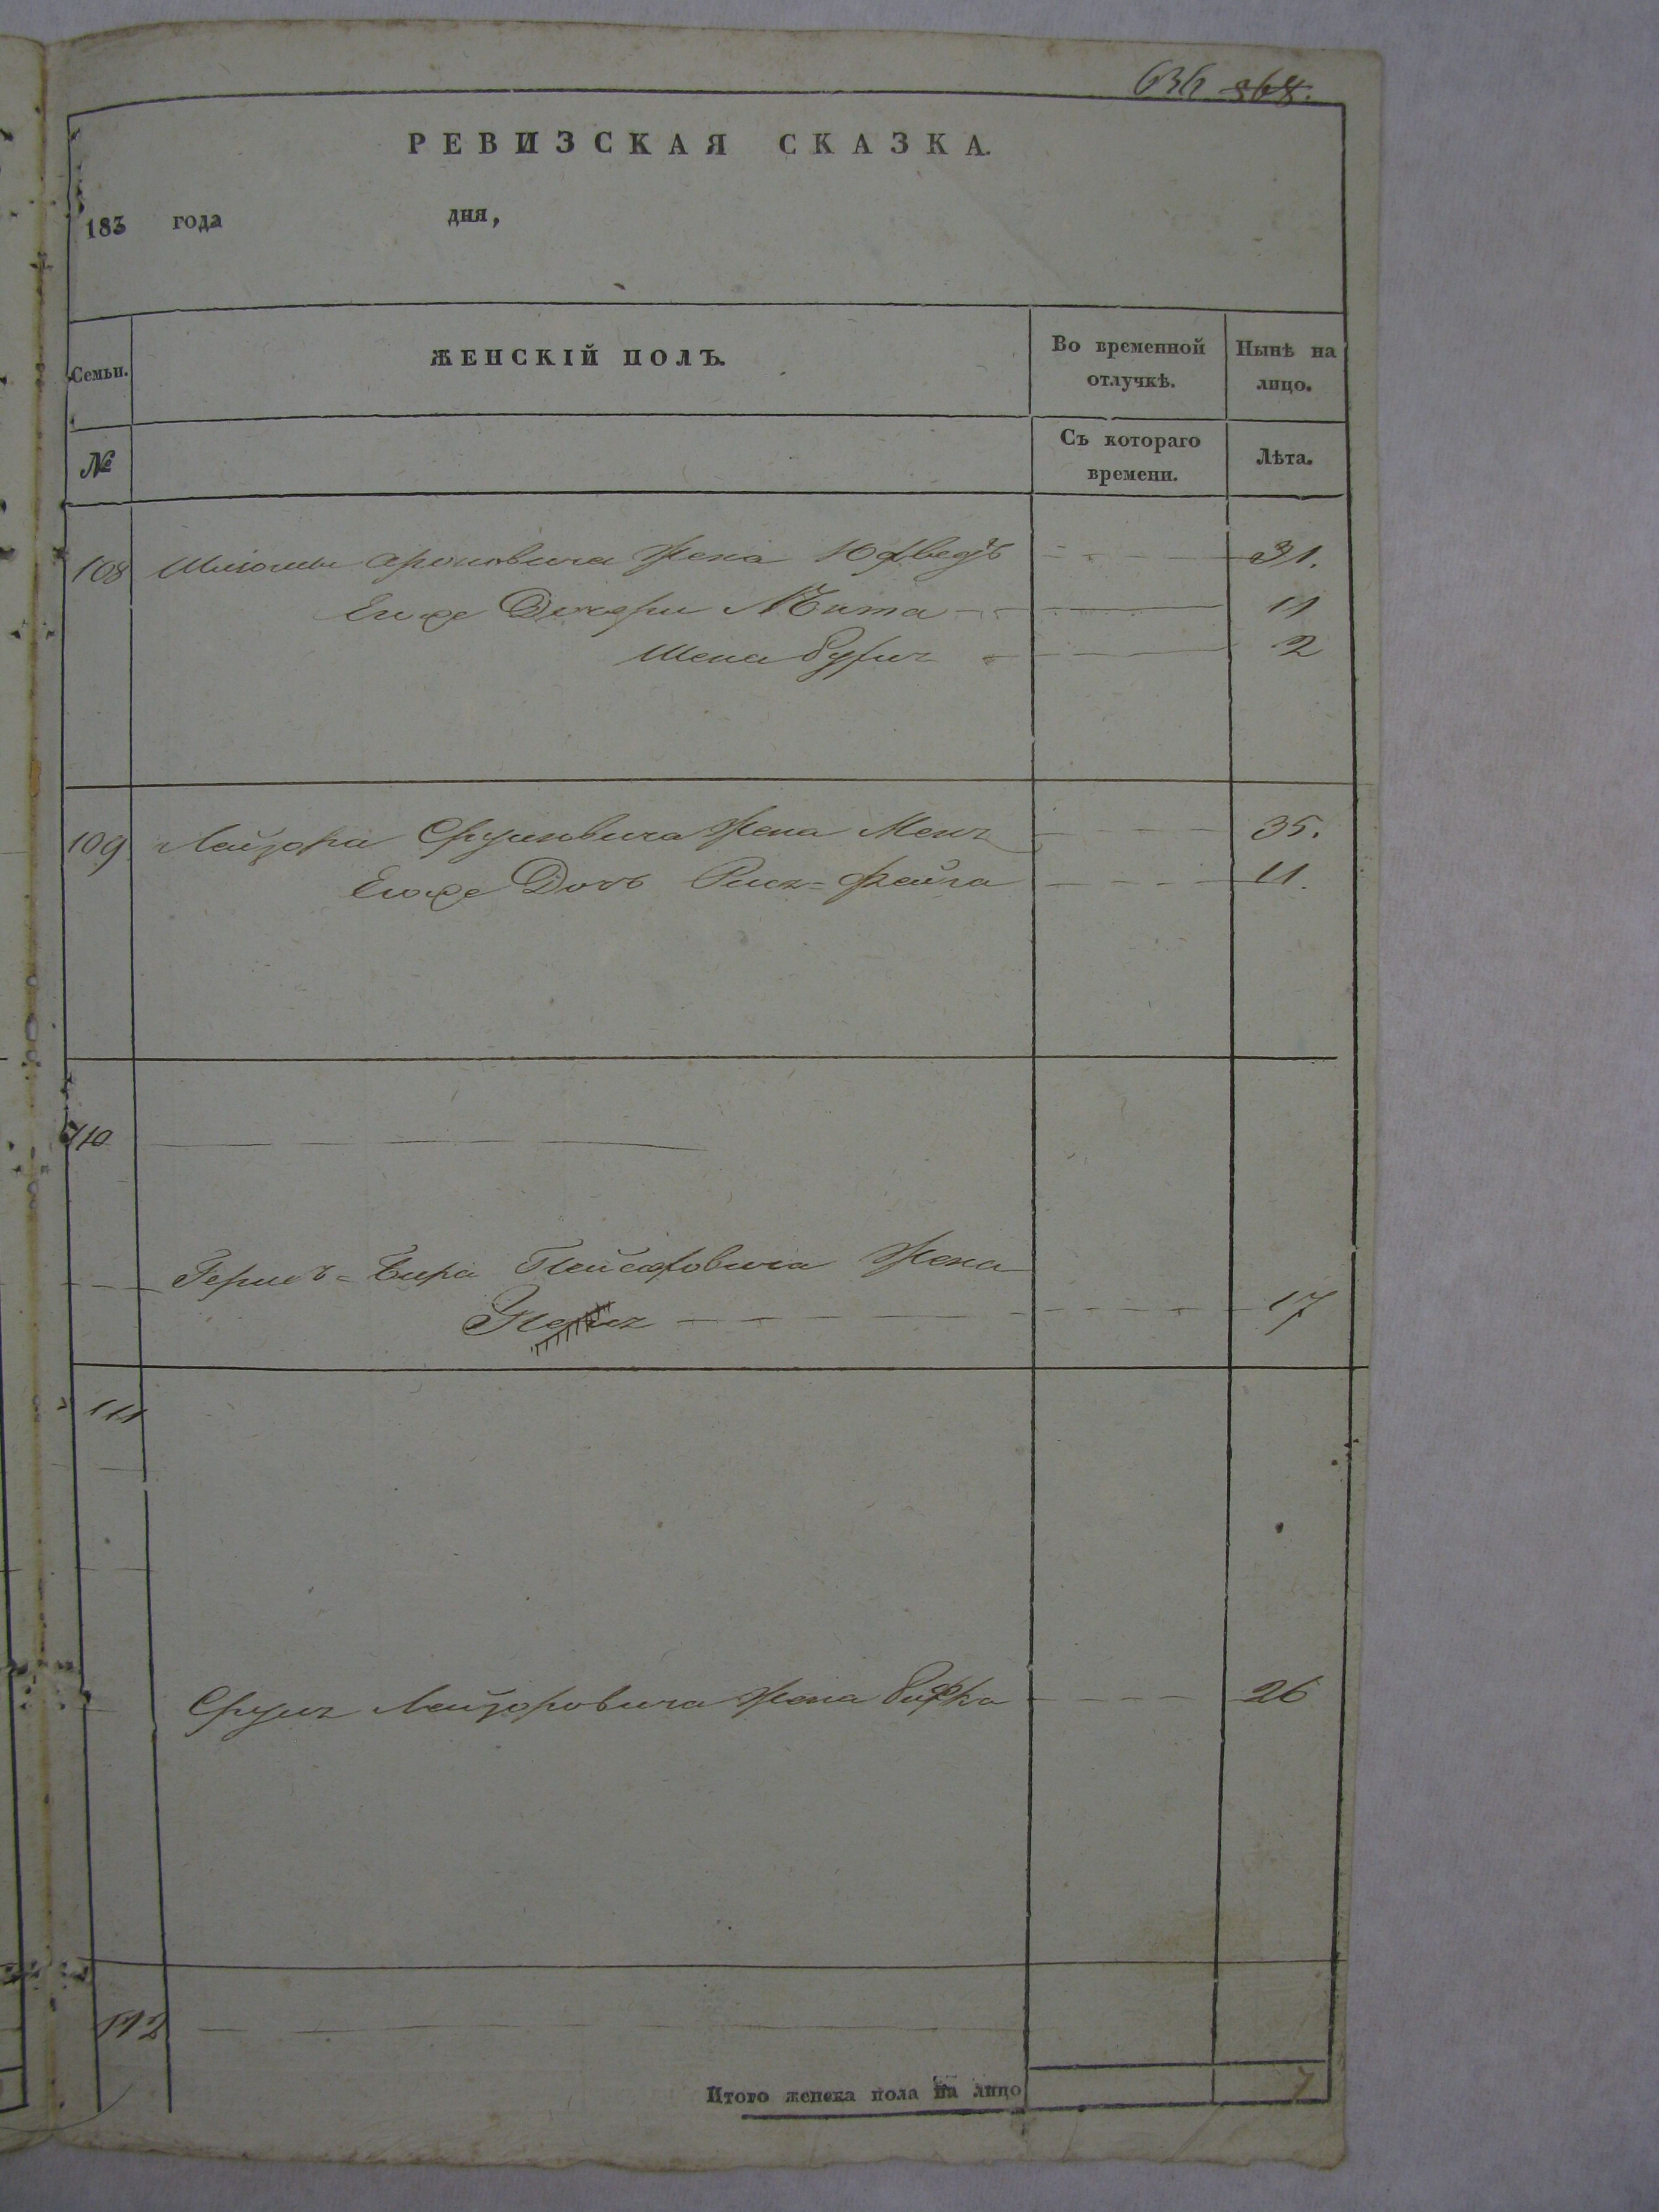 636 868.
РЕВИЗСКАЯ СКАЗКА.
183 года дня,
Семьи.
ЖЕНСКІЙ ПОЛЪ.
Во временной отлучкѣ.
Нынѣ на лицо.
№
Съ котораго времени.
Лѣта.
108 Ароновича жена 31.
Его же Дочери 11
Шена 2
109 Лейзора Сруловича жена 35.
Его же Дочь Фейга 11.
110
Гершъ = Бера жена
17
111
Лейзоровича жена Рифка 26
112
Итого женска пола на лицо 7